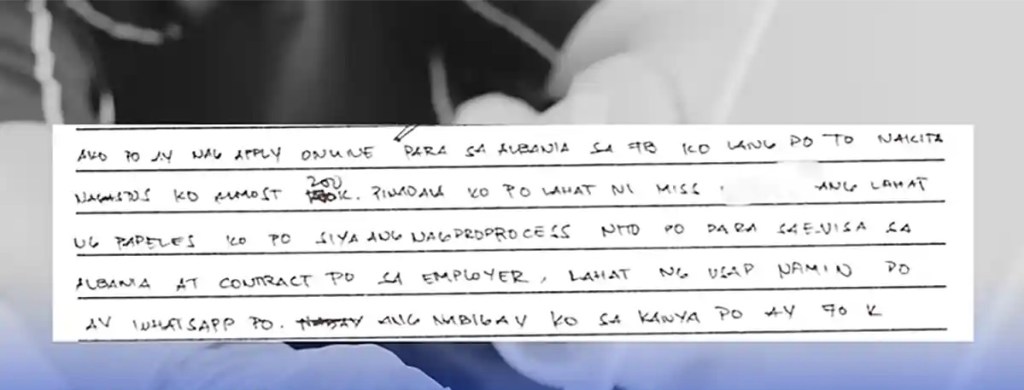 AKO PO AY NAG APPLY ONLINE PARA SA ALBANIA SA FB KO LANG PO TO NAKITA
NAGASTOS KO ALMOST 200 K. PINADALA KO PO LAHAT NI MISS ANG LAHAT
NG PAPELES KO PO SIYA ANG NAGPROPROCESS NITO PO PARA SA E-VISA SA
ALBANIA AT CONTRACT PO SA EMPLOYER, LAHAT NG USAP NAMIN PO
AY WHATSAPP PO. ANG NABIGAY KO SA KANYA PO AY 70 K